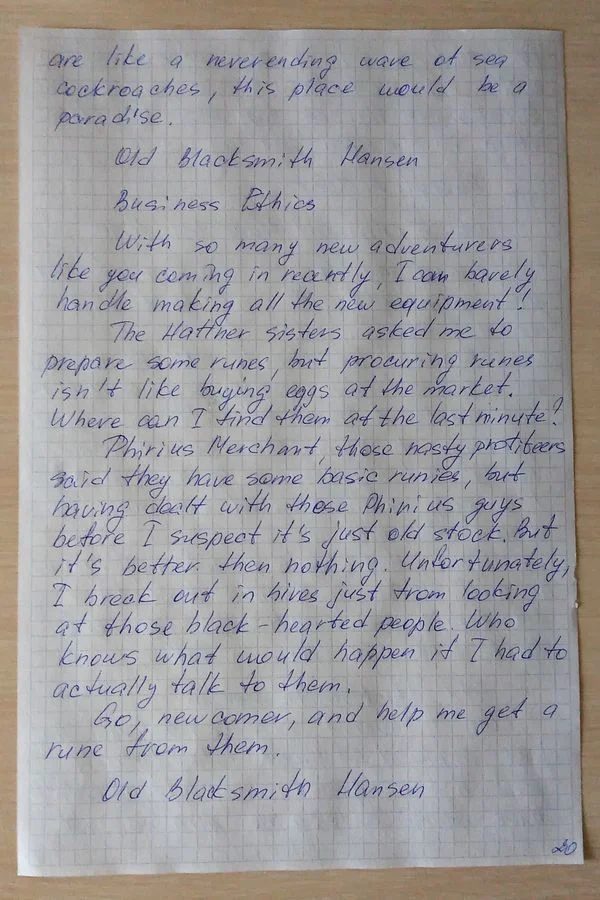 are like a neverending wave of sea
cockroaches, this place would be a
paradise.
Old Blacksmith Hansen
Business Ethics
With so many new adventurers
like you coming in recently, I can barely
handle making all the new equipment!
The Hattner sisters asked me to
prepare some runes, but procuring runes
isn't like buying eggs at the market.
Where can I find them at the last minute?
Phirius Merchant, those nasty profiteers
said they have some basic runies, but
having dealt with those Phirius guys
before I suspect it's just old stock. But
it's better then nothing. Unfortunately,
I break out in hives just from looking
at those black-hearted people. Who
knows what would happen if I had to
actually talk to them.
Go, newcomer, and help me get a
rune from them.
Old Blacksmith Hansen
20